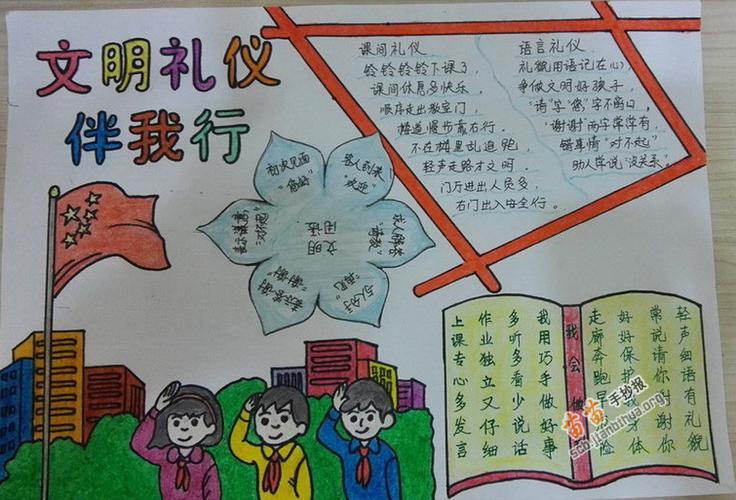 文明礼仪
伴我行
课间礼仪
铃铃铃铃下课了,
课间休息多快乐。
顺序走出教室门,
楼道慢步靠右行。
不在楼里乱追跑,
轻声走路才文明。
门厅进出人员多,
右门出入安全行。
语言礼仪
礼貌用语记在心,
争做文明好孩子,
"请"字"您"字不离口,
"谢谢"两字常常有,
错事情"对不起"
助人常说"没关系"。
文明
用语
初次见面
"您好"
客人到来
"欢迎"
求人解答
"请教"
与人分手
"再见"
表示答谢
"谢谢"
表示歉意
"对不起"
轻声细语有礼貌
常说请你谢你
好好保护身体
走廊奔跑险
我会做
我用巧手做好事
多听多看少说话
作业独立又仔细
上课专心多发言
苗苗手抄报
scb.jianbihua.org